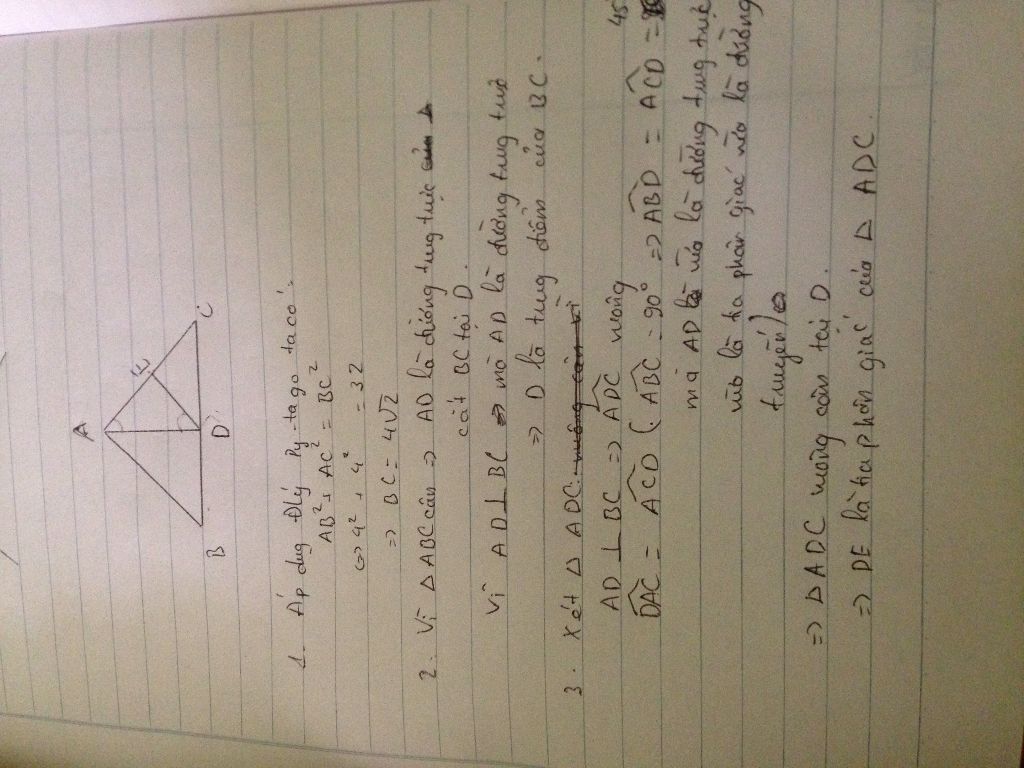 A
E
B
D
C
1. Áp dụng Đlý Py-ta go ta có:
AB² + AC² = BC²
<=> 4² + 4² = 32
=> BC = 4√2
2. Vì Δ ABC cân => AD là đường trung trực
cắt BC tại D.
Vì AD ⊥ BC => mà AD là đường trung trực
=> D là trung điểm của BC.
3. Xét Δ ADC:
AD ⊥ BC => ADC vuông
DAC = ACD (ABC = 90° => ABD = ACD = 45
mà AD vừa là đường trung trực
vừa là tia phân giác vừa là đường
truyến)
=> Δ ADC vuông cân tại D.
=> DE là tia phân giác của Δ ADC.